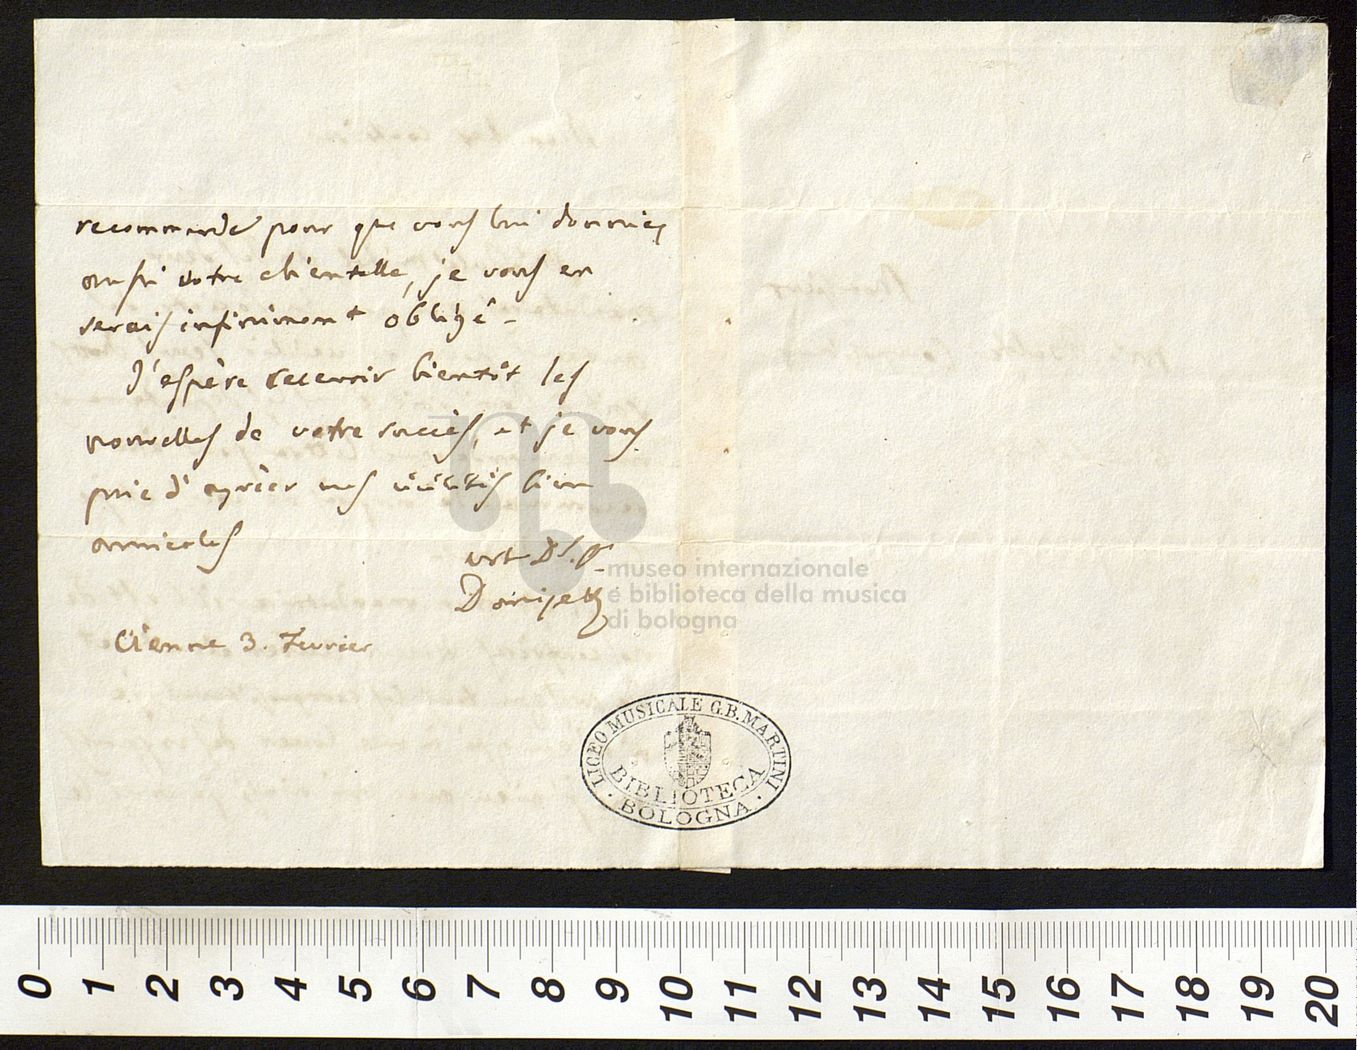 recommandé pour que vous lui donniez
aussi votre clientelle, je vous en
serais infiniment obligê -
J'espère recevoir bientôt les
nouvelles de votre succès, et je vous
prie d'agréer mes civilités bien
amicales
Donizetti
Vienne 3. Fevrier
museo internazionale
e biblioteca della musica
di bologna
LICEO MUSICALE G.B. MARTINI
BIBLIOTECA
BOLOGNA
0 1 2 3 4 5 6 7 8 9 10 11 12 13 14 15 16 17 18 19 20